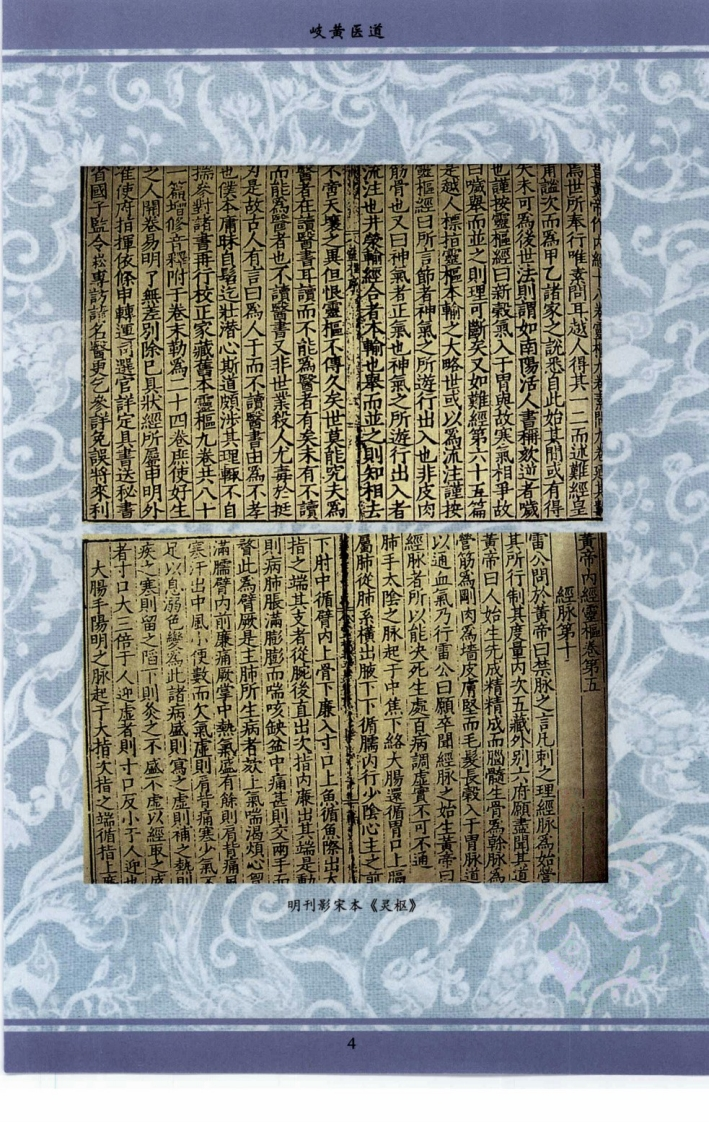 岐黄医道
昔黃帝作內經十八卷靈樞九卷素問九卷迺其數
焉世所奉行唯素問耳越人得其一二而述難經皇
甫謐次而為甲乙諸家之說悉自此始其間或有得
失未可為後世法則謂如南陽活人書稱欬逆者噦
也謹按靈樞經曰新穀氣入于胃與故寒氣相爭故
曰噦舉而並之則理可斷矣又如難經第六十五篇
是越人標指靈樞本輸之大略世或以為流注謹按
靈樞經曰所言節者神氣之所遊行出入也非皮肉
筋骨也又曰神氣者正氣也神氣之所遊行出入者
流注也井滎輸經合者本輸也舉而並之則知相去
不啻天壤之異但恨靈樞不傳久矣世莫能究夫為
醫者在讀醫書耳讀而不能為醫者有矣未有不讀
而能為醫者也不讀醫書又非世業殺人尤毒於挺
刃是故古人有言曰為人子而不讀醫書由為不孝
也僕本庸昧自髫迄壯潛心斯道頗涉其理輒不自
揣參對諸書再行校正家藏舊本靈樞九卷共八十
一篇增修音釋附于卷末勒為二十四卷庶使好生
之人開卷易明了無差別除已具狀經所屬申明外
准使府指揮依條申轉運司選官詳定具書送秘書
省國子監令崧專訪請名醫更乞參詳免誤將來利
黃帝內經靈樞卷第五
經脉第十
雷公問於黃帝曰禁脉之言凡刺之理經脉為始營
其所行制其度量內次五藏外别六府願盡聞其道
黃帝曰人始生先成精精成而腦髓生骨為幹脉為
營筋為剛肉為墻皮膚堅而毛髮長穀入于胃脉道
以通血氣乃行雷公曰願卒聞經脉之始生黃帝曰
經脉者所以能決死生處百病調虛實不可不通
肺手太陰之脉起于中焦下絡大腸還循胃口上膈
屬肺從肺系橫出腋下下循臑內行少陰心主之前
下肘中循臂內上骨下廉入寸口上魚循魚際出大
指之端其支者從腕後直出次指內廉出其端是動
則病肺脹滿膨膨而喘咳缺盆中痛甚則交兩手而
瞀此為臂厥是主肺所生病者欬上氣喘渴煩心胷
滿臑臂內前廉痛厥掌中熱氣盛有餘則肩背痛風
寒汗出中風小便數而欠氣虛則肩背痛寒少氣不
足以息溺色變為此諸病盛則寫之虛則補之熱則
疾之寒則留之陷下則灸之不盛不虛以經取之盛
者寸口大三倍于人迎虛者則寸口反小于人迎也
大腸手陽明之脉起于大指次指之端循指上廉
明刊影宋本《灵枢》
4